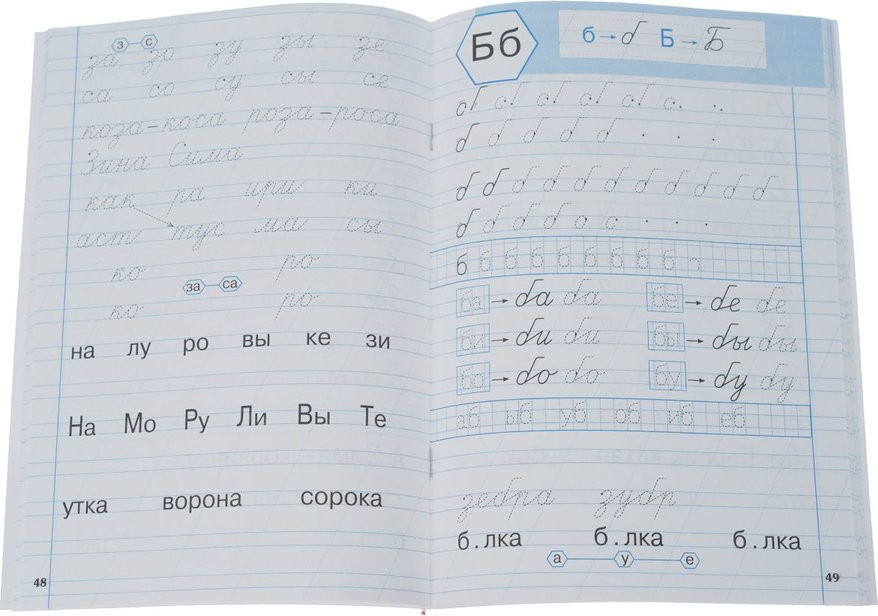 з с
за зо зу зы зе
са со су сы се
коза-коса роза-роса
Зина Сима
как ра ири ки
аст тус ма сы
ко ро
за са
ко ро
на лу ро вы ке зи
На Мо Ру Ли Вы Те
утка ворона сорока
48
Бб б → б Б → Б
б б б б б
б б б б б
б б б б б б б б б б б
б б б б
б б б б б б б б б
ба → ба ба бе → бе бе
би → би би бы → бы бы
бо → бо бо бу → бу бу
аб ыб уб об иб еб
зебра зубр
б.лка б.лка б.лка
а у е
49